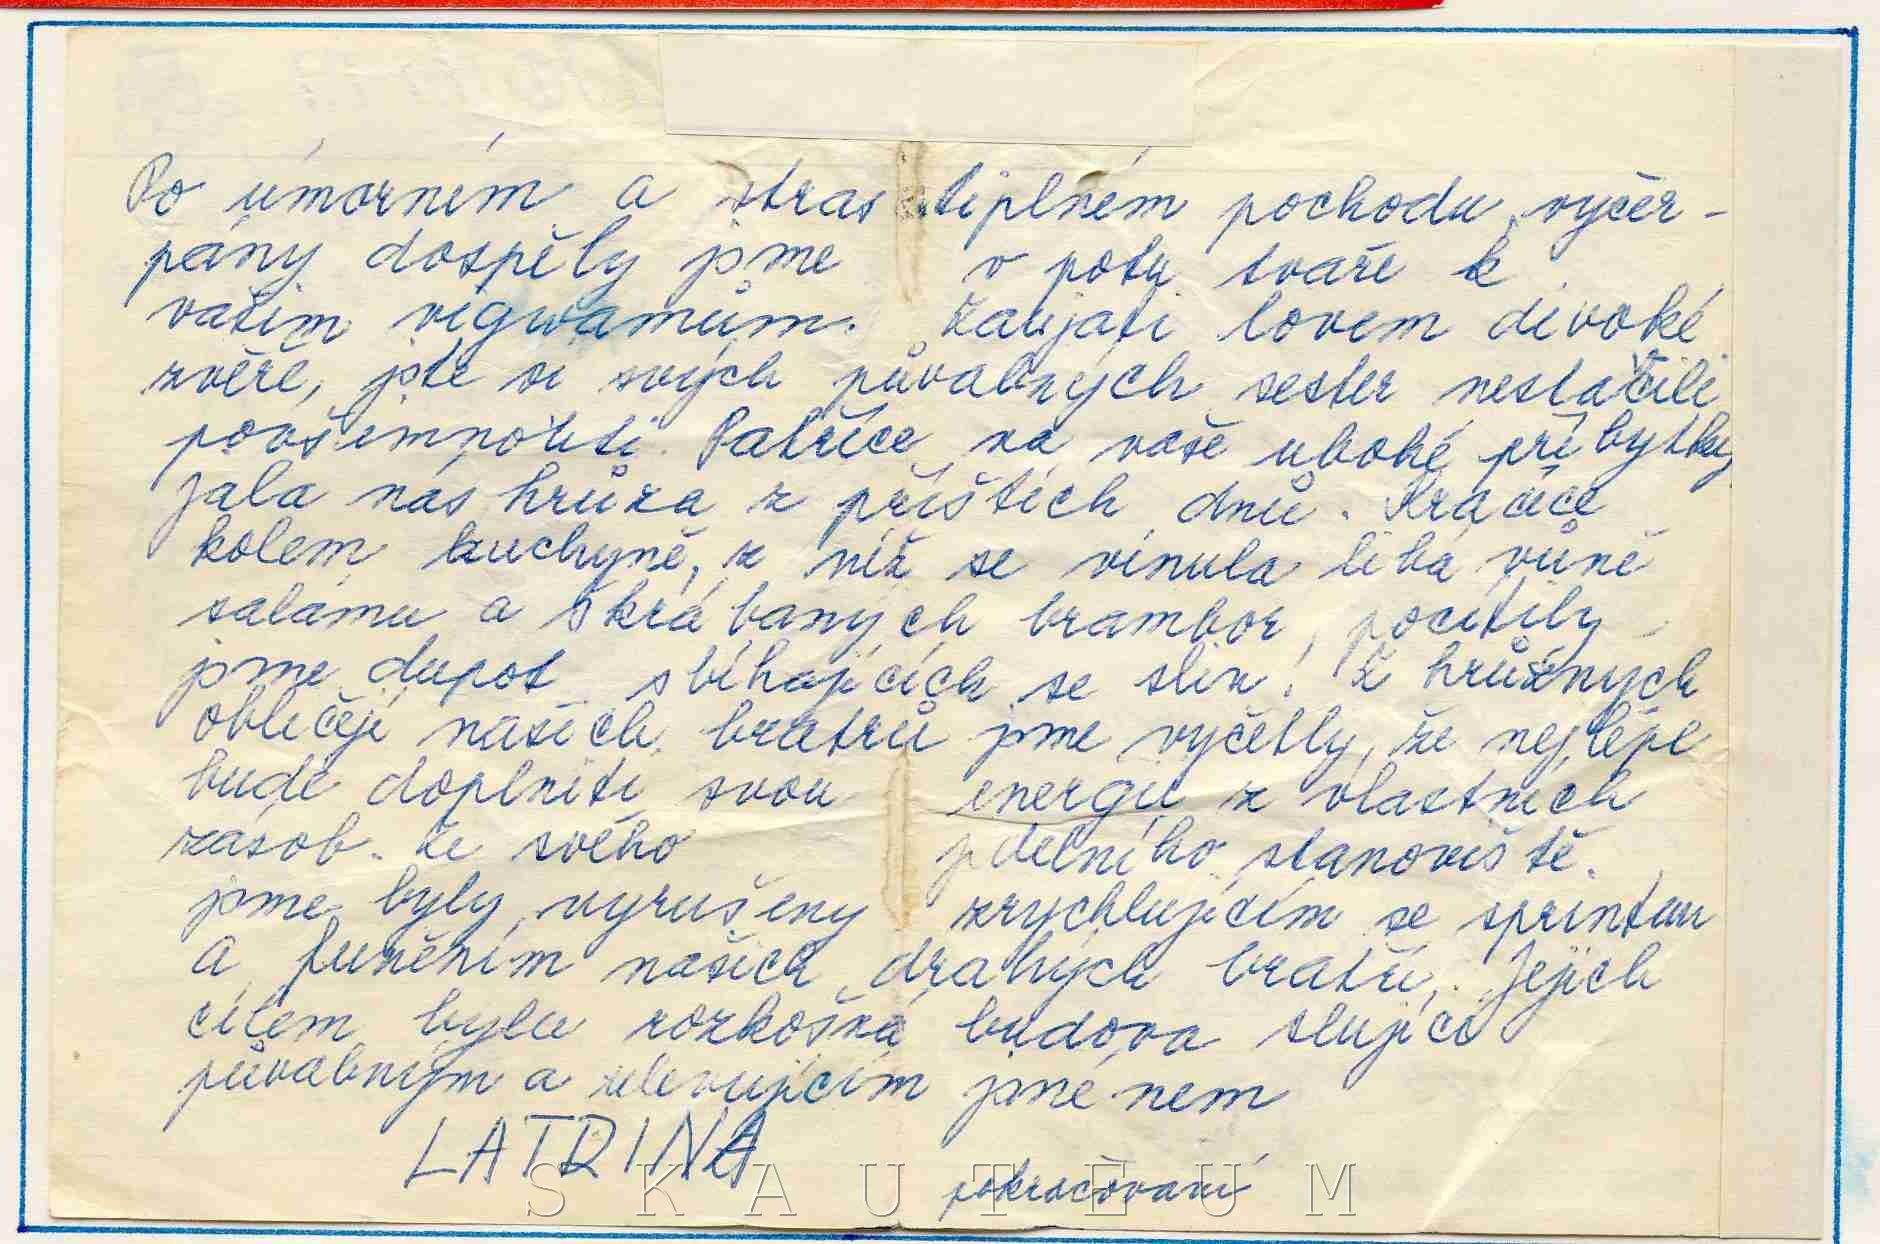 Po úmorném a strastiplném pochodu, vyčer-
pány dospěly jsme v potu tváře k
vašim vigwamům. Zaujati lovem divoké
zvěře, jste si svých půvabných sester nestačili
povšimnouti. Patříce na vaše uboké příbytky,
jala nás hrůza z příštích dnů. Kráčíce
kolem kuchyně, z níž se vinula libá vůně
salámu a škrábaných brambor, pocítily
jsme dupot sbíhajících se slin! Z hrůzných
obličejů našich bratrů jsme vyčetly, že nejlépe
bude doplniti svou energii z vlastních
zásob. Ze svého jídelního stanoviště.
jsme byly vyrušeny zrychlujícím se sprintem
a funěním našich drahých bratří. Jejich
cílem byla rozkošná budova slující
půvabným a ulevujícím jménem
LATRINA
pokračování
SKAUTEUM